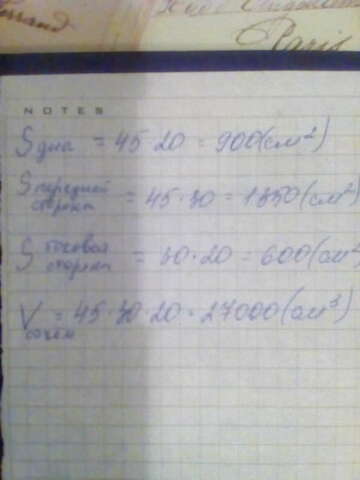 Paris
NOTES
S дна = 45·20 = 900(см²)
S передней стороны = 45·30 = 1350(см²)
S боковая сторона = 30·20 = 600(см²
V = 45·30·20 = 27000(см³)